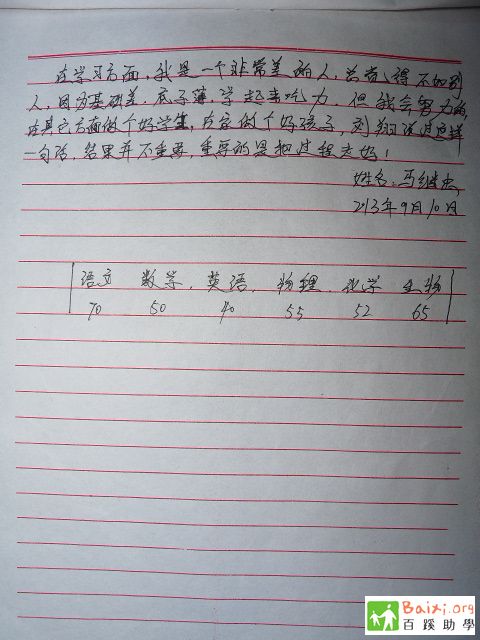 在学习方面，我是一个非常差的人，总觉得不如别
人，因为基础差，底子薄，学起来吃力，但我会努力的，
在其它方面做个好学生，在家做个好孩子，刘翔说过这样
一句话，结果并不重要，重要的是把过程走好！
姓名：马继忠
2013年9月10日
语文 数学 英语 物理 化学 生物
70 50 40 55 52 65
Baixi.org
百蹊助學